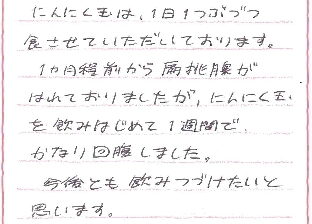 にんにく玉は、1日1つぶづつ
食させていただいております。
1か月程前から扁桃腺が
はれておりましたが、にんにく玉
を飲みはじめて1週間で
かなり回腹しました。
今後とも飲みつづけたいと
思います。